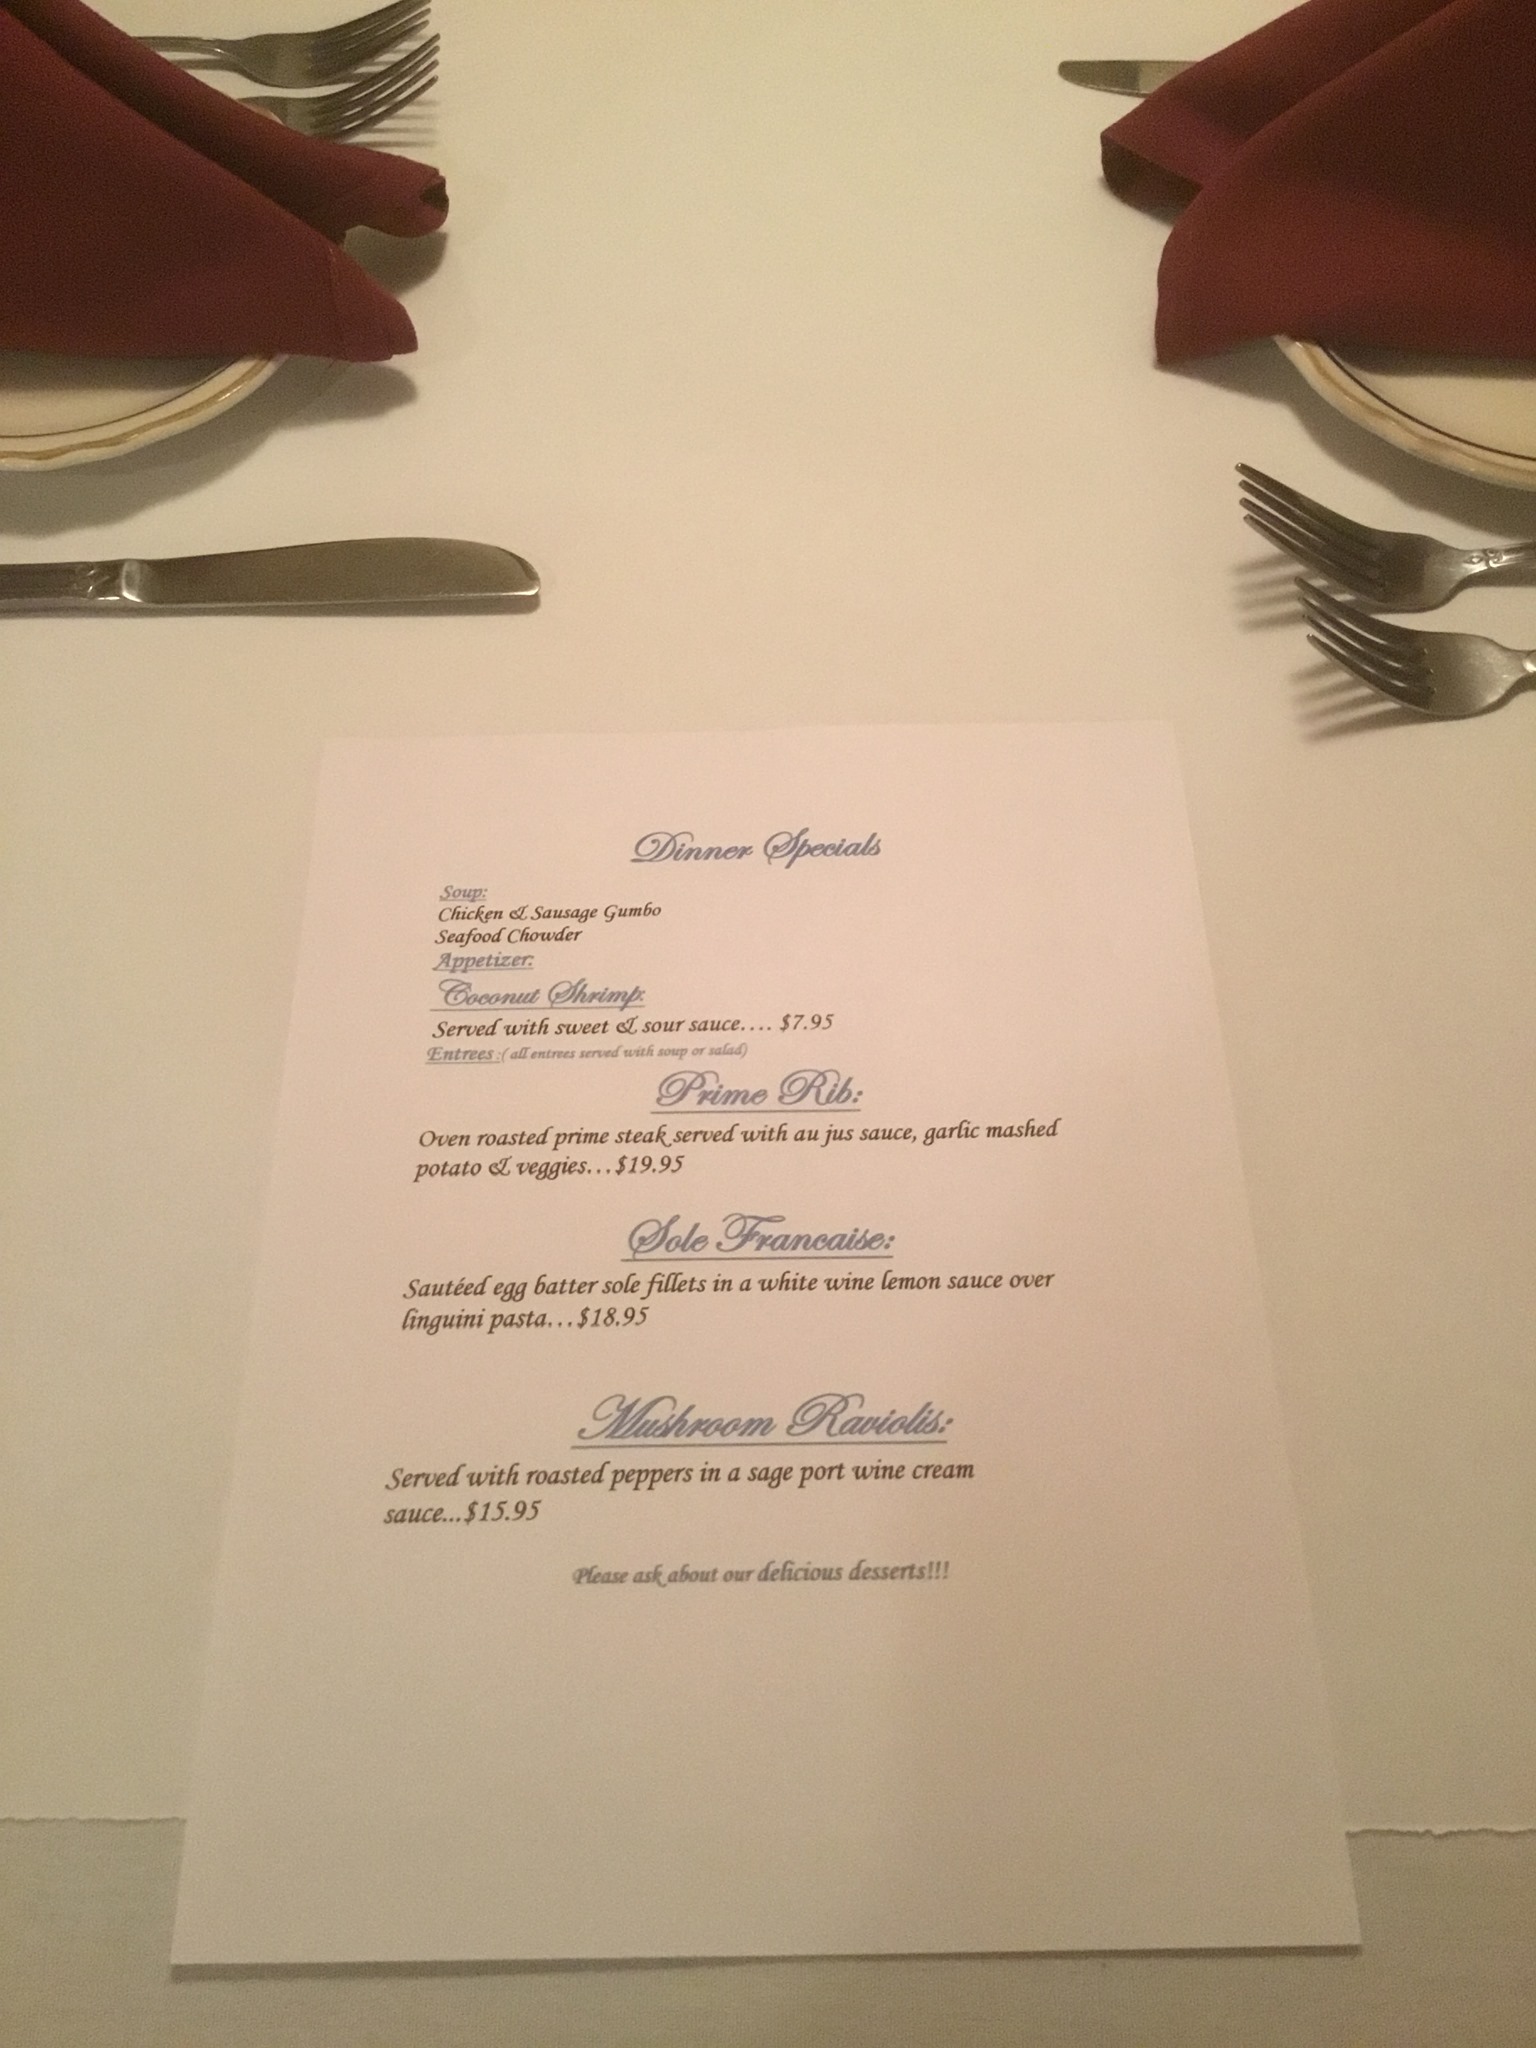 Dinner Specials
Soup:
Chicken & Sausage Gumbo
Seafood Chowder
Appetizer:
Coconut Shrimp:
Served with sweet & sour sauce…. $7.95
Entrees :( all entrees served with soup or salad)
Prime Rib:
Oven roasted prime steak served with au jus sauce, garlic mashed
potato & veggies…$19.95
Sole Francaise:
Sautéed egg batter sole fillets in a white wine lemon sauce over
linguini pasta…$18.95
Mushroom Raviolis:
Served with roasted peppers in a sage port wine cream
sauce...$15.95
Please ask about our delicious desserts!!!